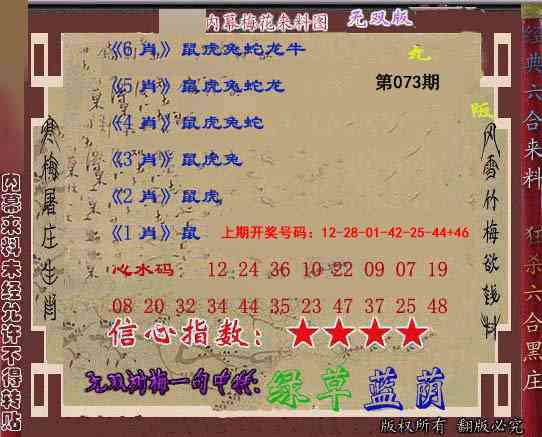 内幕梅花来料图 无双版
《6 肖》鼠虎兔蛇龙牛
《5 肖》鼠虎兔蛇龙
第073期
《4 肖》鼠虎兔蛇
《3 肖》鼠虎兔
《2 肖》鼠虎
《1 肖》鼠
上期开奖号码：12-28-01-42-25-44+46
心水码： 12 24 36 10 22 09 07 19
08 20 32 34 44 35 23 47 37 25 48
信心指数：★★★★
无双鸿梅一句中特：绿草蓝荫
版权所有 翻版必究
寒梅屠庄生肖
风雪竹梅欲钱料
内幕来料未经允许不得转贴
经典六合来料 狂杀六合黑庄